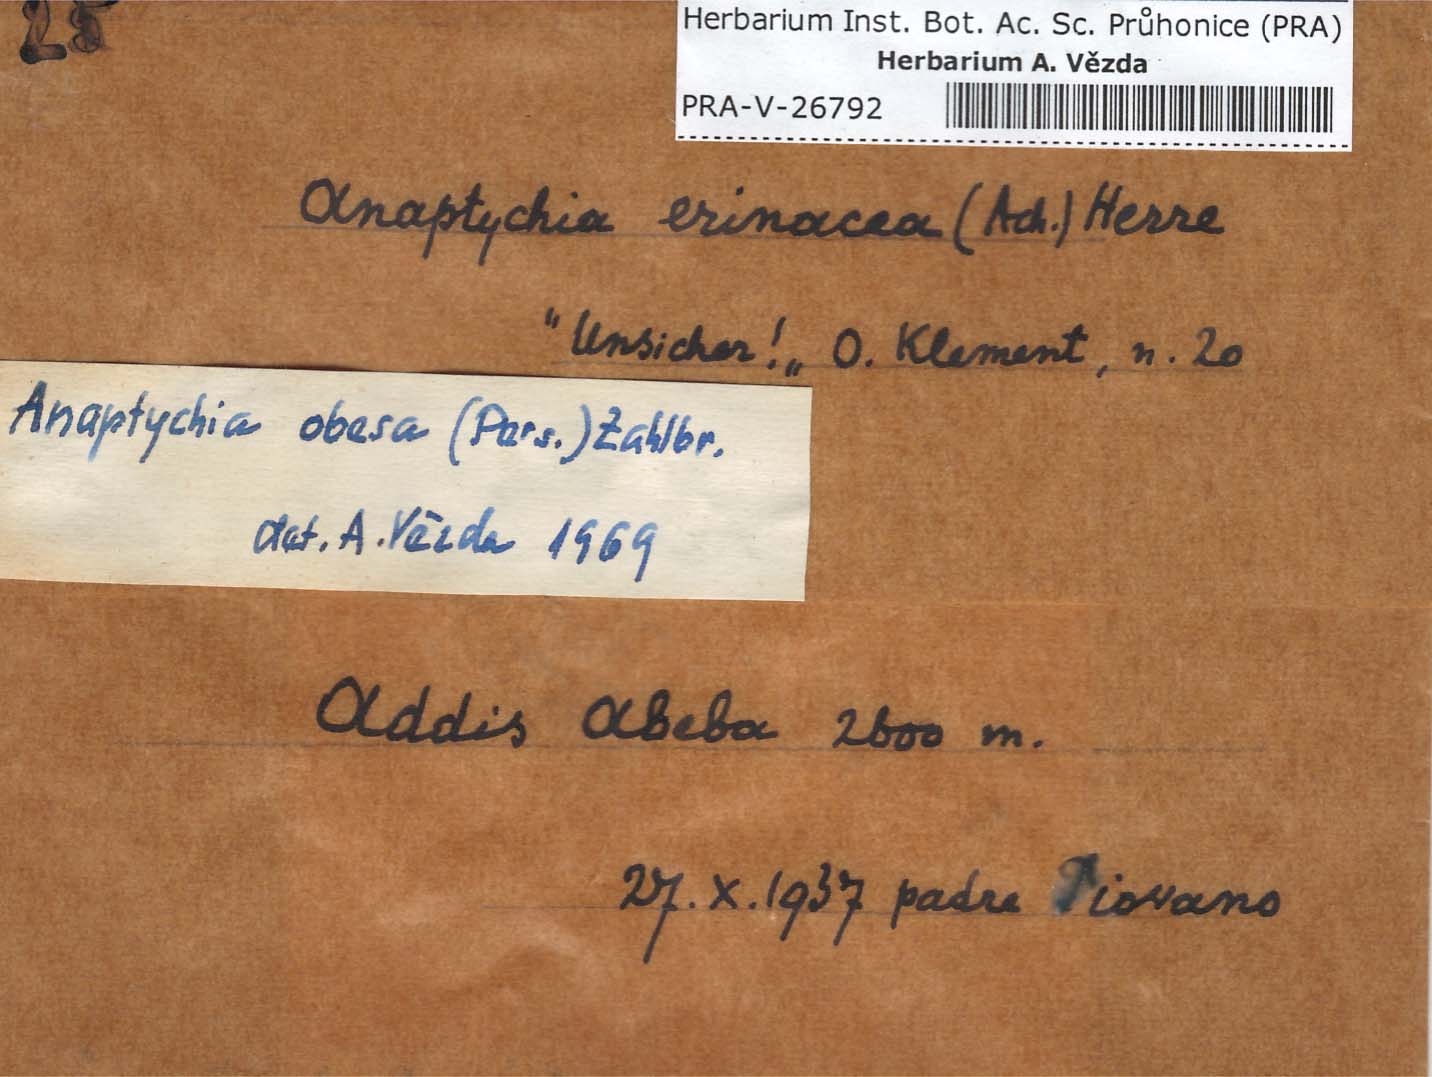 25
Herbarium Inst. Bot. Ac. Sc. Průhonice (PRA)
Herbarium A. Vězda
PRA-V-26792
Anaptychia erinacea (Ach.) Herre
"Unsicher!„ O. Klement, n. 20
Anaptychia obesa (Pers.) Zahlbr.
det. A. Vězda 1969
Addis Abeba 2600 m.
27. X. 1937 padre Piovano